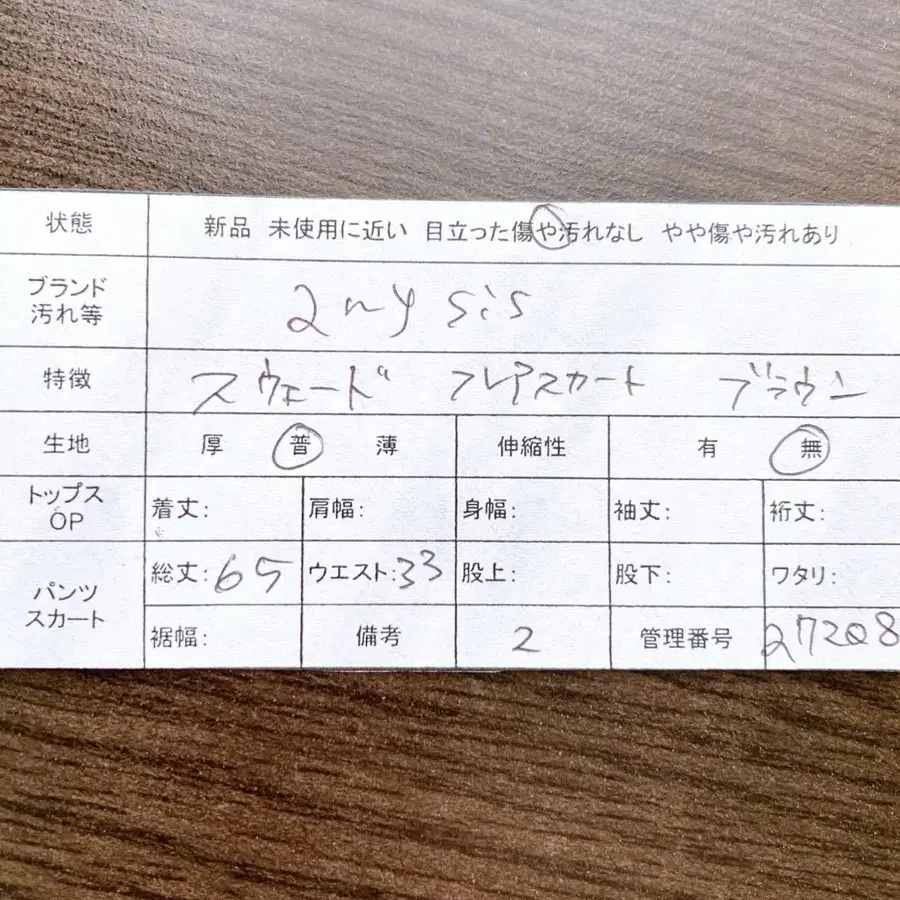 状態 新品 未使用に近い 目立った傷や汚れなし やや傷や汚れあり
ブランド
汚れ等 any sis
特徴 スウェード フレアスカート ブラウン
生地 厚 普 薄 伸縮性 有 無
トップス
OP 着丈: 肩幅: 身幅: 袖丈: 裄丈:
パンツ
スカート
総丈:65 ウエスト:33 股上: 股下: ワタリ:
裾幅: 備考 2 管理番号 27208